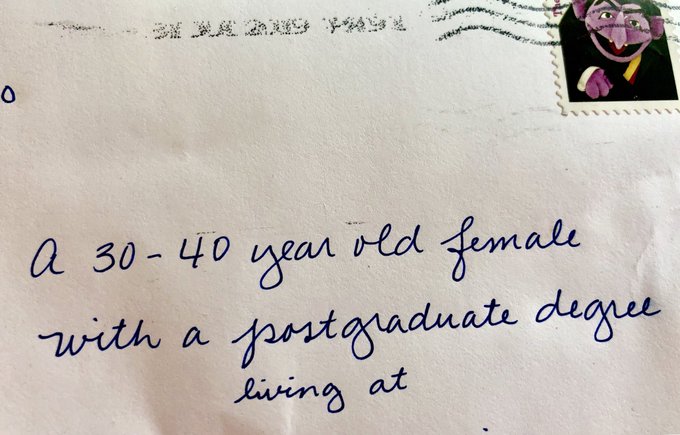 31 JUL 2019 PM 9 L
o
A 30-40 year old female
with a postgraduate degree
living at